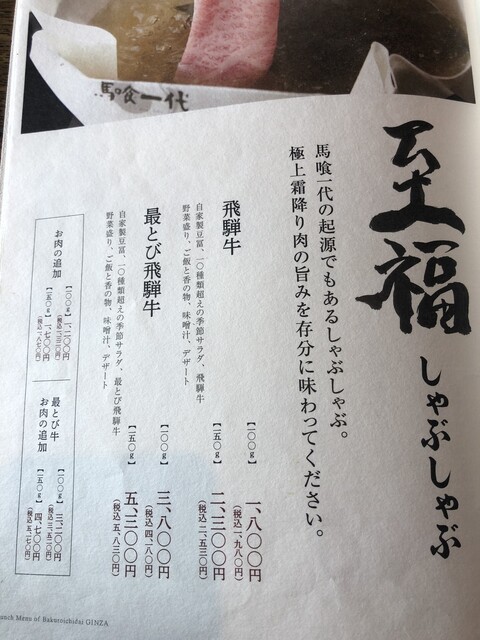 馬喰一代
至福
しゃぶしゃぶ
馬喰一代の起源でもあるしゃぶしゃぶ。
極上霜降り肉の旨みを存分に味わってください。
飛騨牛
【一〇〇g】 一、八〇〇円
（税込 一、九八〇円）
自家製豆冨、一〇種類超えの季節サラダ、飛騨牛
【一五〇g】 二、三〇〇円
野菜盛り、ご飯と香の物、味噌汁、デザート
（税込 二、五三〇円）
最とび飛騨牛
【一〇〇g】 三、八〇〇円
（税込 四、一八〇円）
自家製豆冨、一〇種類超えの季節サラダ、最とび飛騨牛
【一五〇g】 五、三〇〇円
野菜盛り、ご飯と香の物、味噌汁、デザート
（税込 五、八三〇円）
お肉の追加
【一〇〇g】 一、二〇〇円
（税込 一、三二〇円）
【一五〇g】 一、七〇〇円
（税込 一、八七〇円）
最とび牛
お肉の追加
【一〇〇g】 三、二〇〇円
（税込 三、五二〇円）
【一五〇g】 四、七〇〇円
（税込 五、一七〇円）
Menu of Bakuroichidai GINZA